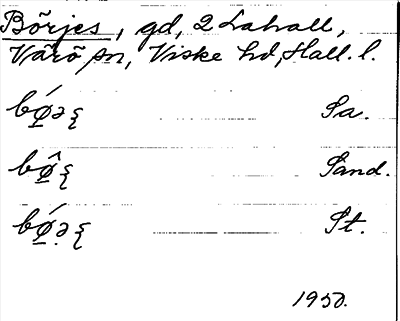 Börjes, gd, 2 Lahall,
Värö sn, Viske hd, Hall. l.
Sa.
Sand.
St.
1950.